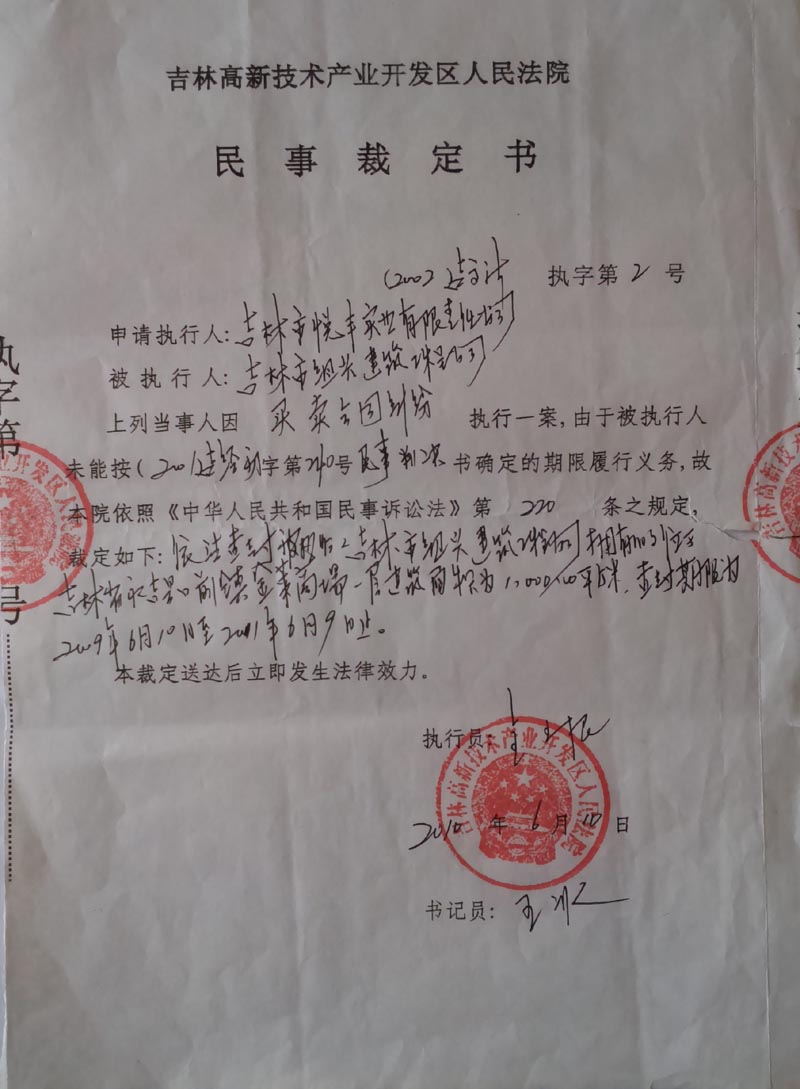 吉林高新技术产业开发区人民法院
民事裁定书
(2002) 执字第 2 号
申请执行人:吉林市悦丰家世有限责任公司
被执行人:吉林市组兴建筑工程公司
上列当事人因 买卖合同纠纷 执行一案,由于被执行人
未能按( 字第240号民事判决书确定的期限履行义务,故
本院依照《中华人民共和国民事诉讼法》第 220 条之规定,
裁定如下:依法查封被执行人吉林市组兴建筑工程公司拥有的位于
吉林省永吉县口前镇金莱商场一层建筑面积为1,000.00平方米,查封期限为
2009年6月10日至2011年6月9日止。
本裁定送达后立即发生法律效力。
执行员:
2010年6月10日
书记员:王
执字第
号
吉林高新技术产业开发区人民法院